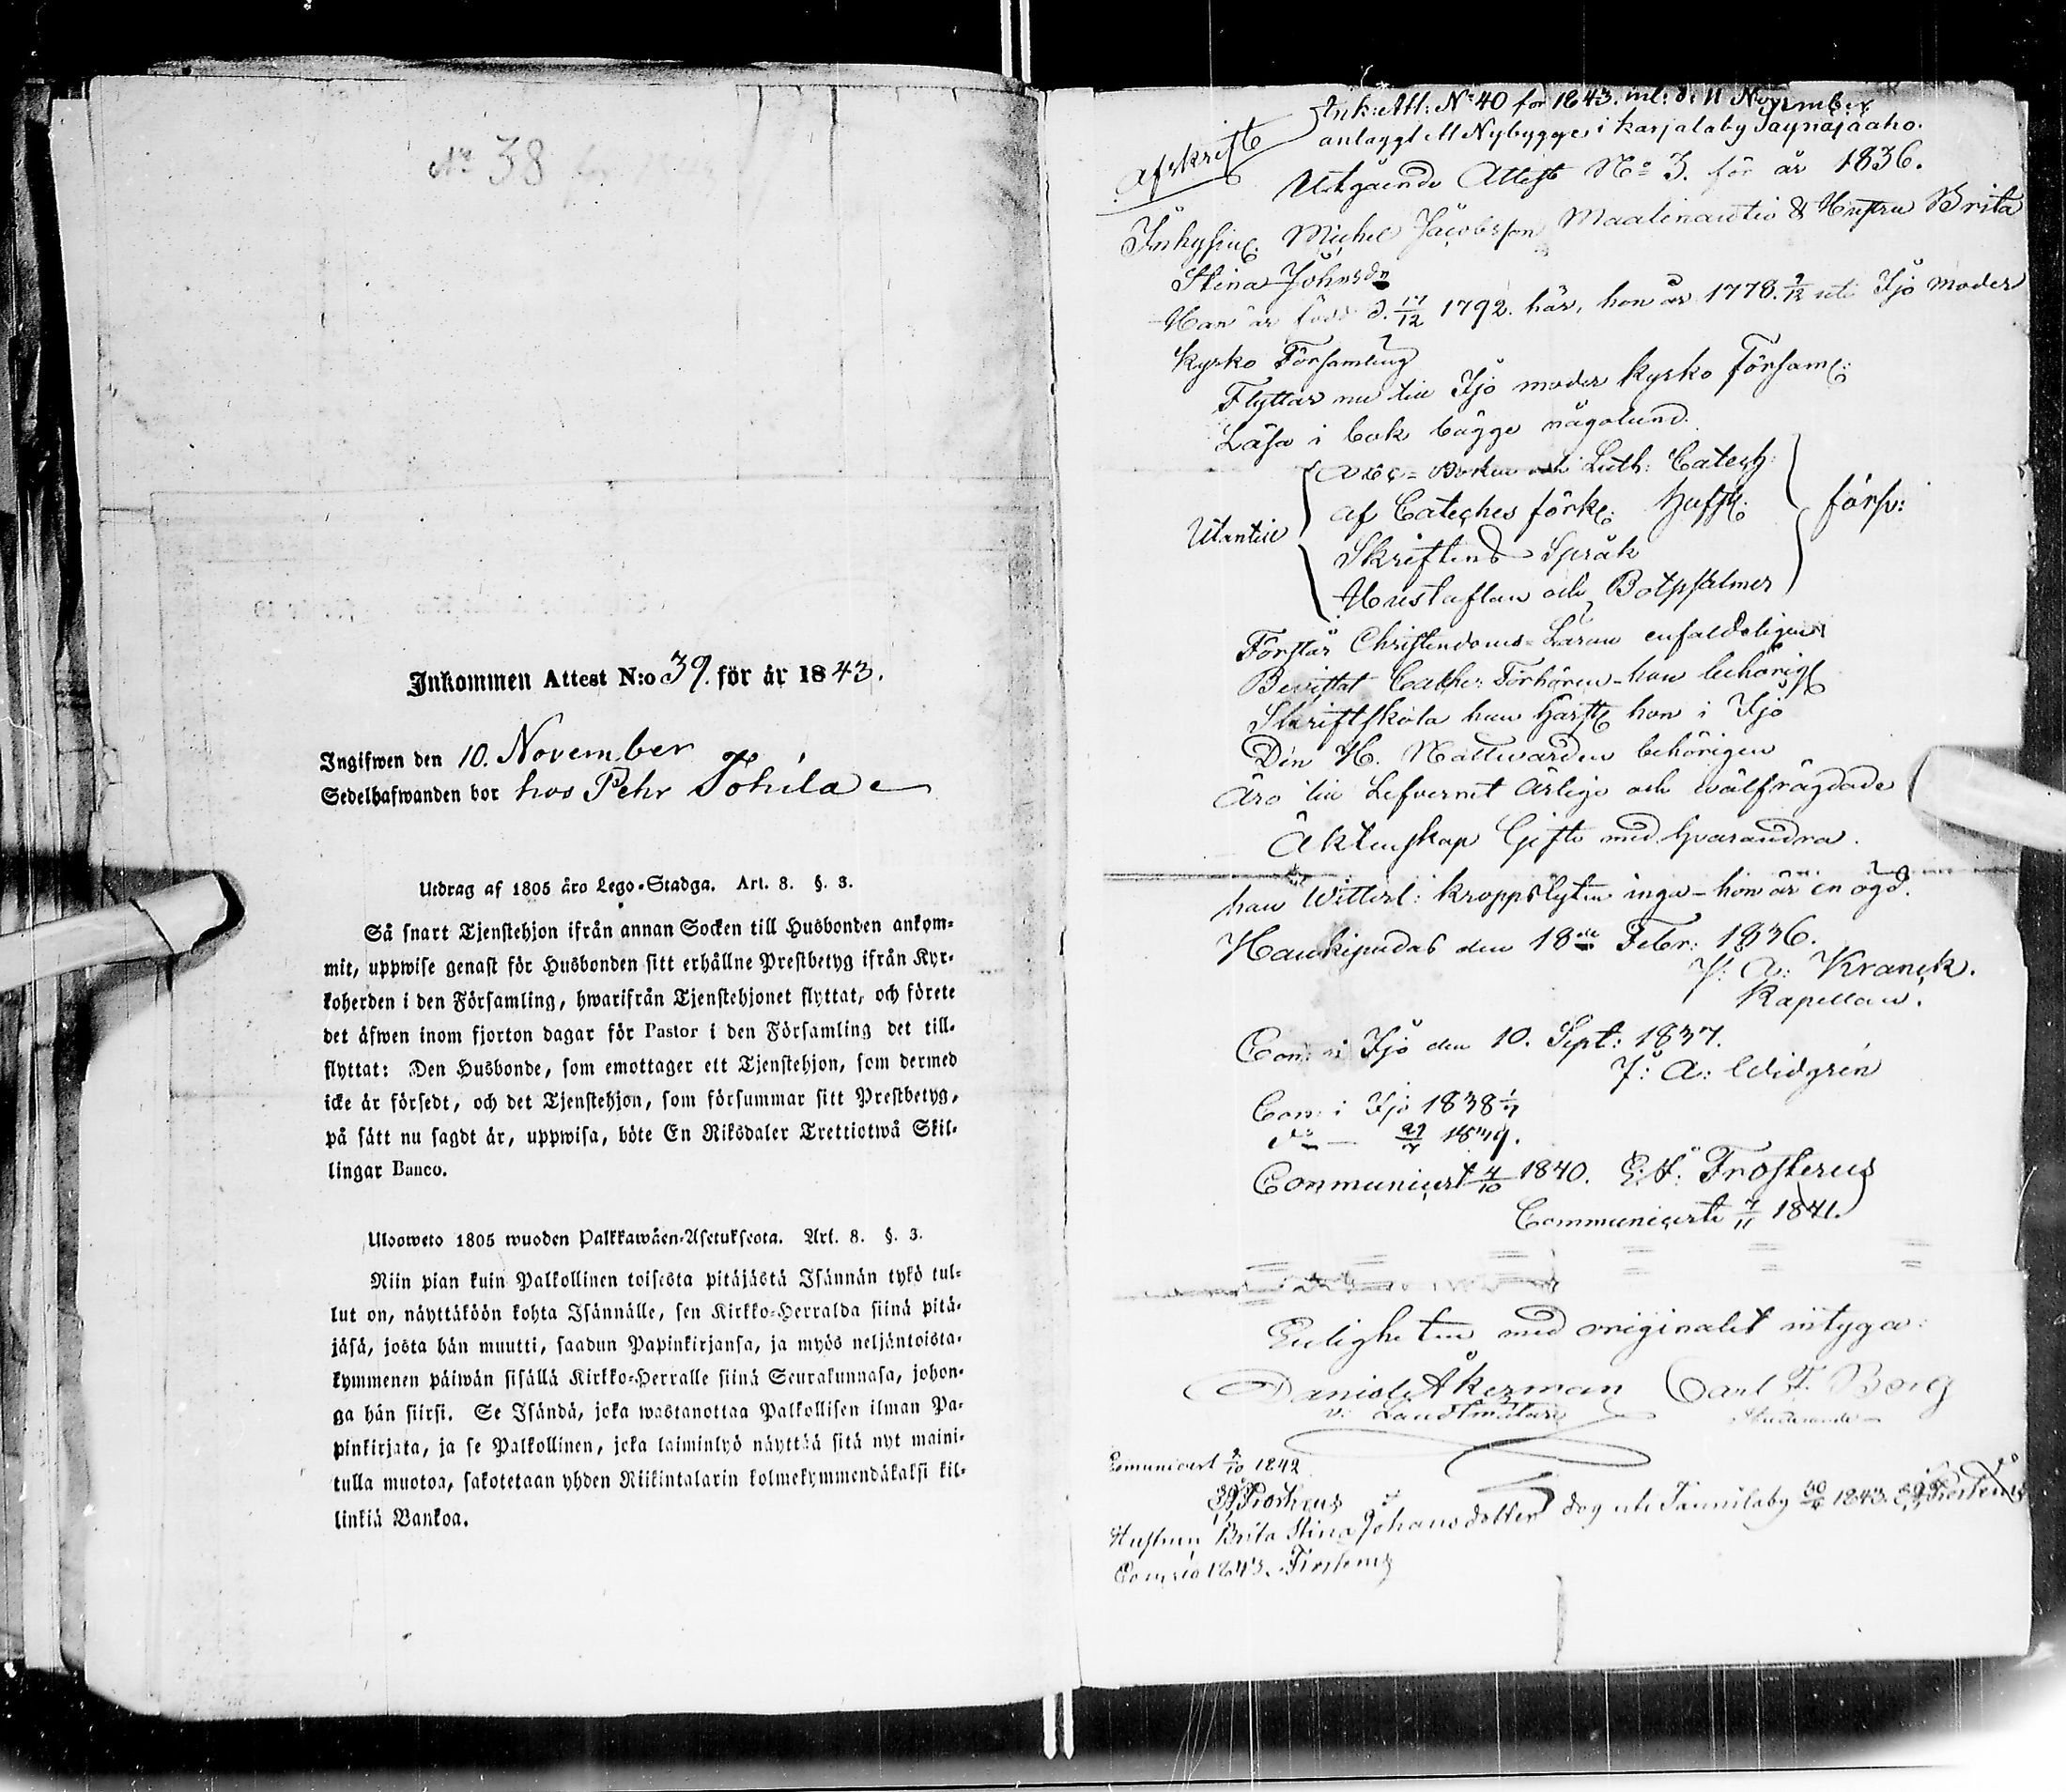 No 38
Inkommen Attest N:o 39. för år 1843.
Ingifwen den 10. November
Sedelhafwanden bor hos Pehr Tohila
Utdrag af 1805 års Lego-Stadga. Art. 8. §. 3.
Så snart Tjenstehjon ifrån annan Socken till Husbonden ankom-
mit, uppwise genast för Husbonden sitt erhållne Prestbetyg ifrån Kyr-
koherden i den Församling, hwarifrån Tjenstehjonet flyttat, och förete
det äfwen inom fjorton dagar för Pastor i den Församling det till-
flyttat: Den Husbonde, som emottager ett Tjenstehjon, som dermed
icke är försedt, och det Tjenstehjon, som försummar sitt Prestbetyg,
på sätt nu sagdt är, uppwisa, böte En Riksdaler Trettiotwå Skil-
lingar Banco.
Uloosweto 1805 wuoden Palkkawäen-Asetuksesta. Art. 8. §. 3.
Niin pian kuin Palkollinen toisesta pitäjästä Isännän tykö tul-
lut on, näyttäköön kohta Isännälle, sen Kirkko-Herralda siinä pitä-
jäsä, josta hän muutti, saadun Papinkirjansa, ja myös neljäntoista-
kymmenen päiwän sisällä Kirkko-Herralle siinä Seurakunnasa, johon-
ga hän siirsi. Se Isändä, joka wastanottaa Palkollisen ilman Pa-
pinkirjata, ja se Palkollinen, joka laiminlyö näyttää sitä nyt maini-
tulla muotoa, sakotetaan yhden Riikintalarin kolmekymmendäkaksi kil-
linkiä Bankoa.
Ink: Att: No 40 for 1843. inl: d: 11 November
anlaggt ett Nybygge i Karjalaby Saynäjäaho.
Afskrift
Utgående Attest No 3. för år 1836.
Inhysing. Michel Jacobsson Maalinautio & Hustru Brita
Stina Johnsdr
Han är född d. 17/12 1792. här, hon är 1778. 9/12 uti Ijo moder
kyrko Församling
Flyttar nu till Ijo moder kyrko Församl:
Läsa i bok bägge någolund.
Utantill
A B C-Boken och Luth: Catech:
af Cateches förkl.
Skriftens Språk
Hustaflan och Botpsalmer
försv:
Förstår Christendoms-Läran enfaldeligen
Bevistat Cathe: Förhören - han behörigt
Skriftskola han härst hon i Ijo
Den H. Nattvarden behörigen
Äro till Lefvernet Ärlige och wälfrägdade
Äktenskap Gifte med hvarandra.
han Witterl: kroppslyten inga - hon är en ögd.
Haukipudas den 18de Febr: 1836.
J: A: Kranck.
Kapellan.
Com: i Ijo den 10. Sept: 1837.
J: A: Widgrén
Com: i Ijo 1838 1/7
do — 1839.
Communicert 4/10 1840. E: J: Frosterus
Communicerte 7/11 1841.
Enligheten med originalet intyga:
Daniel Åkerman Carl F. Borg
v: Landtmätare Studerande
Comunicert 2/10 1842
Frosterus
Hustrun Brita Stina Johansdotter dog uti Tannilaby 30/4 1843. Frosterus
1843. Frosterus